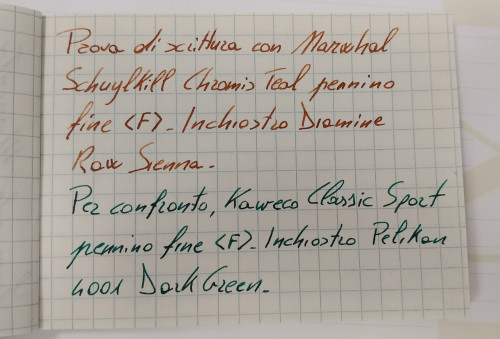 Prova di scrittura con Marxhal
Schuylkill Chromis Teal pennino
fine <F>. Inchiostro Diamine
Raw Sienna.
Per confronto, Kaweco Classic Sport
pennino fine <F>. Inchiostro Pelikan
4001 Dark Green.